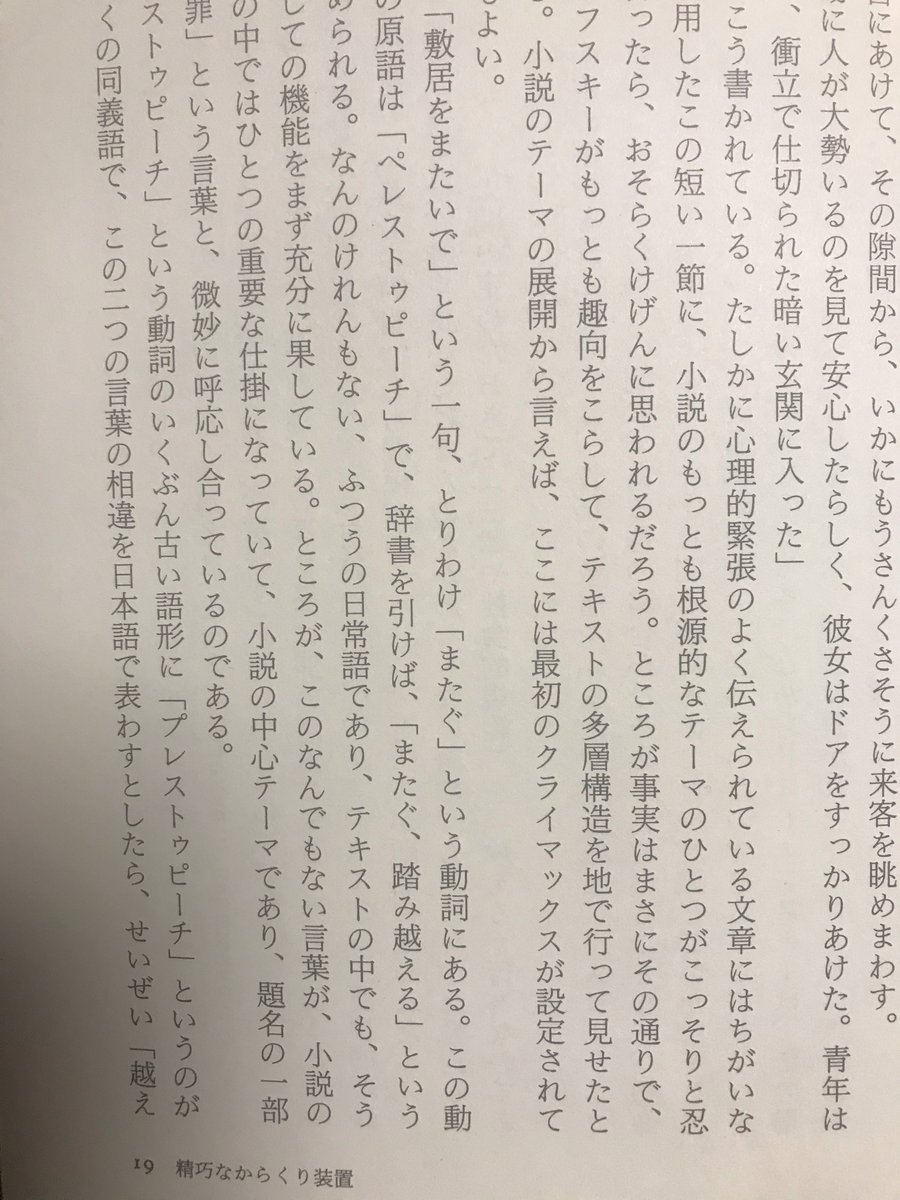 にあけて、その隙間から、いかにもうさんくさそうに来客を眺めまわす。
に人が大勢いるのを見て安心したらしく、彼女はドアをすっかりあけた。青年は
、衝立で仕切られた暗い玄関に入った」
こう書かれている。たしかに心理的緊張のよく伝えられている文章にはちがいな
用したこの短い一節に、小説のもっとも根源的なテーマのひとつがこっそりと忍
ったら、おそらくけげんに思われるだろう。ところが事実はまさにその通りで、
フスキーがもっとも趣向をこらして、テキストの多層構造を地で行って見せたと
。小説のテーマの展開から言えば、ここには最初のクライマックスが設定されて
よい。
「敷居をまたいで」という一句、とりわけ「またぐ」という動詞にある。この動
の原語は「ペレストゥピーチ」で、辞書を引けば、「またぐ、踏み越える」という
められる。なんのけれんもない、ふつうの日常語であり、テキストの中でも、そう
しての機能をまず充分に果している。ところが、このなんでもない言葉が、小説の
の中ではひとつの重要な仕掛になっていて、小説の中心テーマであり、題名の一部
罪」という言葉と、微妙に呼応し合っているのである。
ストゥピーチ」という動詞のいくぶん古い語形に「プレストゥピーチ」というのが
くの同義語で、この二つの言葉の相違を日本語で表わすとしたら、せいぜい「越え
19 精巧なからくり装置